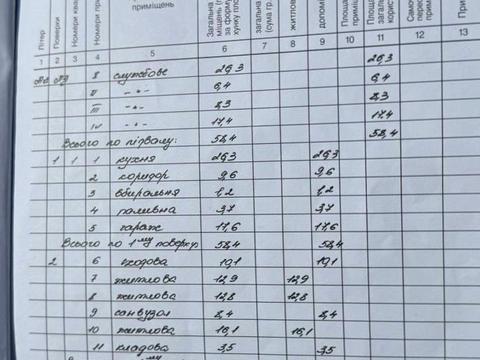 приміщень
Літер
Поверхи
Загальна
1 2 3 4 5 6 7 8 9 10 11 12 13
І службове 26,3 26,3
ІІ -"- 6,4 6,4
ІІІ -"- 8,3 8,3
IV -"- 17,4 17,4
Всього по підвалу: 58,4 58,4
1 1 1 кухня 26,3 26,3
2 коридор 9,6 9,6
3 вбиральня 1,2 1,2
4 паливна 3,7 3,7
5 гараж 17,6 17,6
Всього по 1му поверху 58,4 58,4
2 6 сходова 10,1 10,1
7 житлова 12,9 12,9
8 житлова 12,8 12,8
9 санвузол 8,4 8,4
10 житлова 16,1 16,1
11 кладова 3,5 3,5